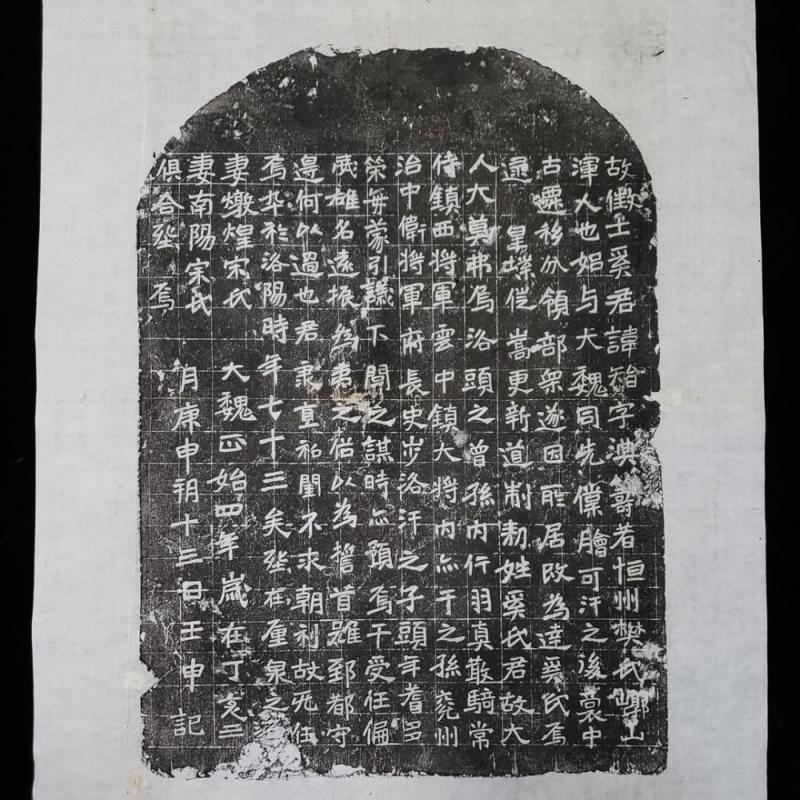 故徵士奚君諱智字淟籌者恒州樊氏崞山
渾人也始与大魏同先僕膾可汗之後裏中
古遷移分領部衆遂因所居改為達奚氏焉
逮 皇業徙嵩更新道制勑姓奚氏君故大
人大莫弗烏洛頭之曾孫內行羽真散騎常
侍鎮西將軍雲中鎮大將內亦干之孫兗州
治中衛將軍府長史步洛汗之子頭年耆多
策每蒙引議下關之謀時亦預焉干受任偏
威雄名遠振為夷之俗以為誓首雖郅都守
邊何以過也君秉直私閨不求朝利故死任
焉卒於洛陽時年七十三矣塟在廛泉之
妻燉煌宋氏 大魏正始四年歲在丁亥三
妻南陽宋氏 月庚申朔十三日壬申記
俱合塟焉